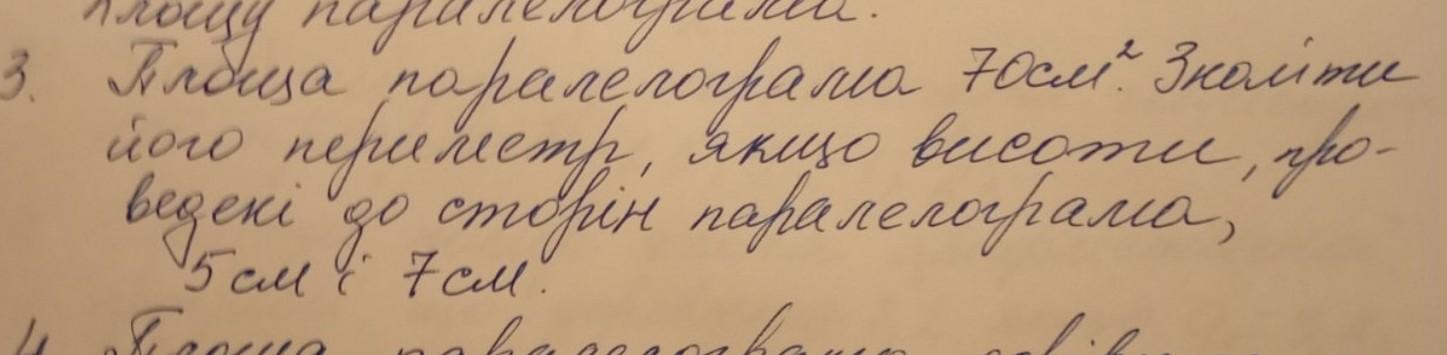 площу паралелограма.
3. Площа паралелограма 70см². Знайти
його периметр, якщо висоти, про-
ведені до сторін паралелограма,
5см і 7см.
4. Площа паралелограма